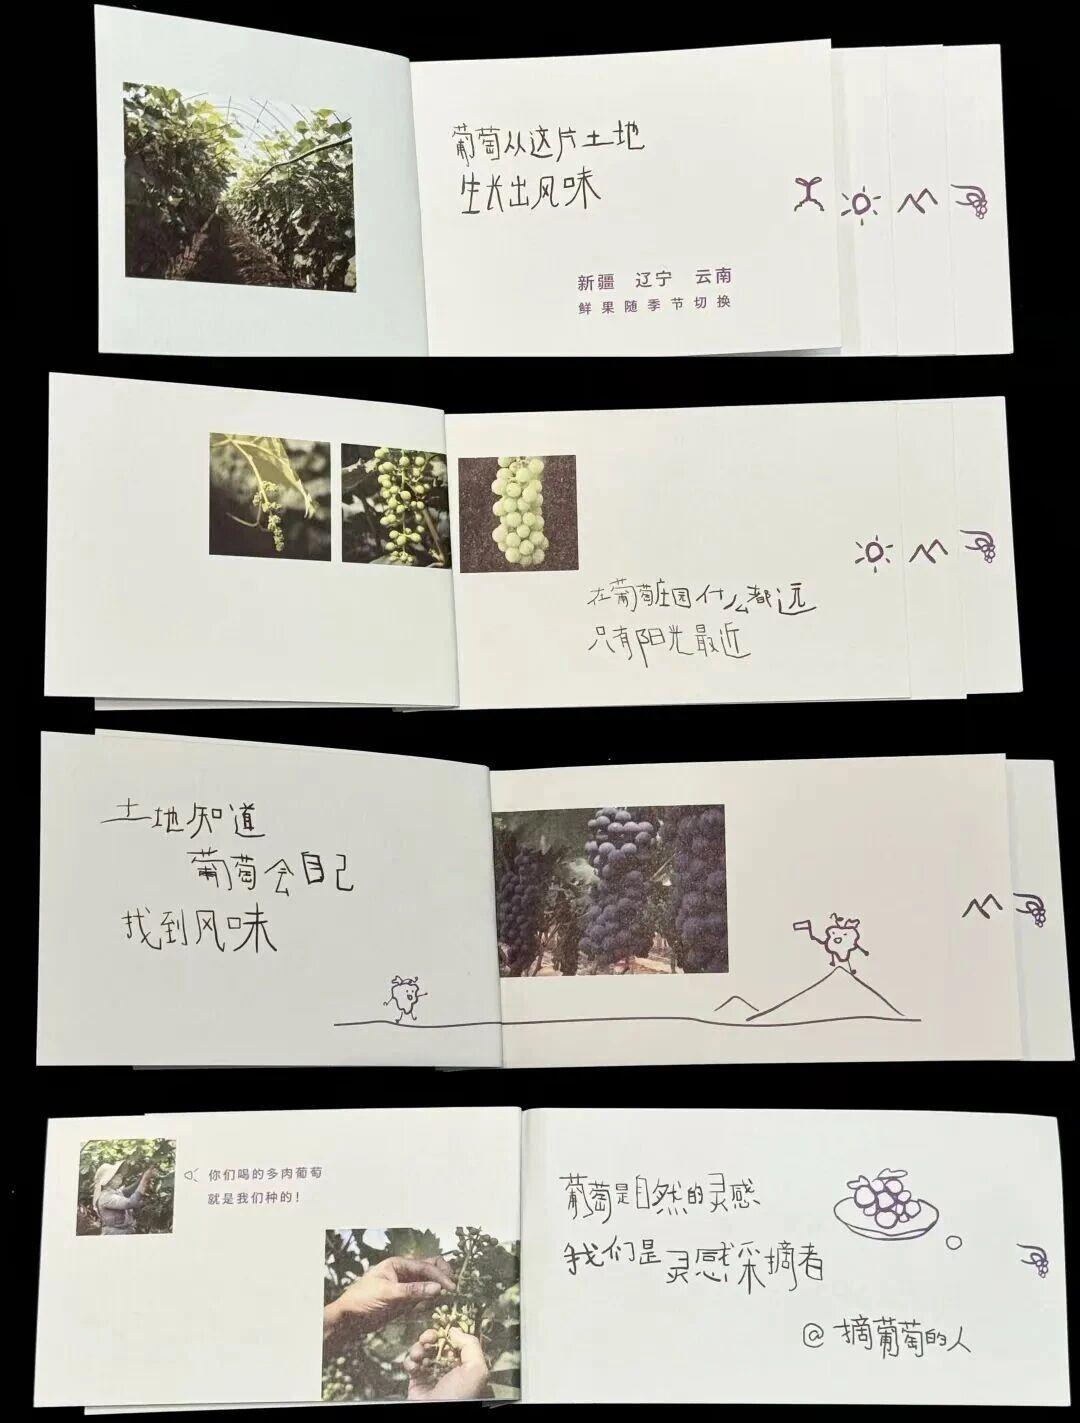 葡萄从这片土地
生长出风味
新疆 辽宁 云南
鲜果随季节切换
在葡萄庄园什么都远
只有阳光最近
土地知道
葡萄会自己
找到风味
你们喝的多肉葡萄
就是我们种的！
葡萄是自然的灵感
我们是灵感采摘者
@摘葡萄的人